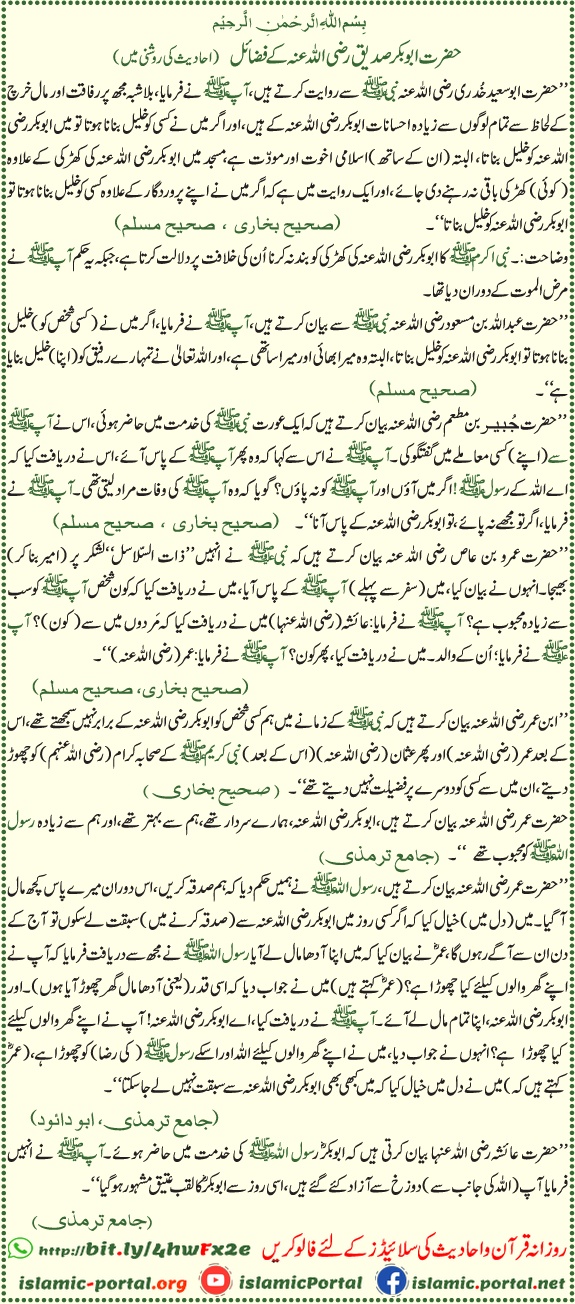 بِسْمِ اللهِ الرَّحْمٰنِ الرَّحِيْمِ
حضرت ابوبکر صدیق رضی اللہ عنہ کے فضائل (احادیث کی روشنی میں)
’’حضرت ابوسعید خُدری رضی اللہ عنہ نبی ﷺ سے روایت کرتے ہیں، آپ ﷺ نے فرمایا، بلاشبہ مجھ پر رفاقت اور مال خرچ
کے لحاظ سے تمام لوگوں سے زیادہ احسانات ابوبکر رضی اللہ عنہ کے ہیں، اور اگر میں نے کسی کو خلیل بنانا ہوتا تو میں ابوبکر رضی
اللہ عنہ کو خلیل بناتا، البتہ (ان کے ساتھ) اسلامی اخوت اور مودّت ہے، مسجد میں ابوبکر رضی اللہ عنہ کی کھڑکی کے علاوہ
(کوئی) کھڑکی باقی نہ رہنے دی جائے، اور ایک روایت میں ہے کہ اگر میں نے اپنے پروردگار کے علاوہ کسی کو خلیل بنانا ہوتا تو
ابوبکر رضی اللہ عنہ کو خلیل بناتا‘‘۔ (صحیح بخاری ، صحیح مسلم)
وضاحت:۔ نبی اکرم ﷺ کا ابوبکر رضی اللہ عنہ کی کھڑکی کو بند نہ کرنا اُن کی خلافت پر دلالت کرتا ہے، جبکہ یہ حکم آپ ﷺ نے
مرض الموت کے دوران دیا تھا۔
’’حضرت عبداللہ بن مسعود رضی اللہ عنہ نبی ﷺ سے بیان کرتے ہیں، آپ ﷺ نے فرمایا، اگر میں نے (کسی شخص کو) خلیل
بنانا ہوتا تو ابوبکر رضی اللہ عنہ کو خلیل بناتا، البتہ وہ میرا بھائی اور میرا ساتھی ہے، اور اللہ تعالیٰ نے تمہارے رفیق کو (اپنا) خلیل بنایا
ہے‘‘۔ (صحیح مسلم)
’’حضرت جُبیر بن مطعم رضی اللہ عنہ بیان کرتے ہیں کہ ایک عورت نبی ﷺ کی خدمت میں حاضر ہوئی، اس نے آپ ﷺ
سے (اپنے) کسی معاملے میں گفتگو کی۔ آپ ﷺ نے اس سے کہا کہ وہ پھر آپ ﷺ کے پاس آئے، اس نے دریافت کیا کہ
اے اللہ کے رسول ﷺ! اگر میں آؤں اور آپ ﷺ کو نہ پاؤں؟ گویا کہ وہ آپ ﷺ کی وفات مراد لیتی تھی۔ آپ ﷺ نے
فرمایا، اگر تو مجھے نہ پائے، تو ابوبکر رضی اللہ عنہ کے پاس آنا‘‘۔ (صحیح بخاری ، صحیح مسلم)
’’حضرت عمرو بن عاص رضی اللہ عنہ بیان کرتے ہیں کہ نبی ﷺ نے انہیں ’’ذات السّلاسل‘‘ لشکر پر (امیر بنا کر)
بھیجا۔ انہوں نے بیان کیا، میں (سفر سے پہلے) آپ ﷺ کے پاس آیا، میں نے دریافت کیا کہ کون شخص آپ ﷺ کو سب
سے زیادہ محبوب ہے؟ آپ ﷺ نے فرمایا: عائشہ (رضی اللہ عنہا) میں نے دریافت کیا کہ مَردوں میں سے (کون)؟ آپ
ﷺ نے فرمایا؛ اُن کے والد۔ میں نے دریافت کیا، پھر کون؟ آپ ﷺ نے فرمایا: عمر (رضی اللہ عنہ)‘‘۔
(صحیح بخاری، صحیح مسلم)
’’ابن عمر رضی اللہ عنہ بیان کرتے ہیں کہ نبی ﷺ کے زمانے میں ہم کسی شخص کو ابوبکر رضی اللہ عنہ کے برابر نہیں سمجھتے تھے، اس
کے بعد عمر (رضی اللہ عنہ) اور پھر عثمان (رضی اللہ عنہ) (اس کے بعد) نبی کریم ﷺ کے صحابہ کرام (رضی اللہ عنہم) کو چھوڑ
دیتے، ان میں سے کسی کو دوسرے پر فضیلت نہیں دیتے تھے‘‘۔ (صحیح بخاری)
حضرت عمر رضی اللہ عنہ بیان کرتے ہیں، ابوبکر رضی اللہ عنہ، ہمارے سردار تھے، ہم سے بہتر تھے، اور ہم سے زیادہ رسول
اللہ ﷺ کو محبوب تھے ‘‘۔ (جامع ترمذی)
’’حضرت عمر رضی اللہ عنہ بیان کرتے ہیں، رسول اللہ ﷺ نے ہمیں حکم دیا کہ ہم صدقہ کریں، اس دوران میرے پاس کچھ مال
آ گیا۔ میں (دل میں) خیال کیا کہ اگر کسی روز میں ابوبکر رضی اللہ عنہ سے (صدقہ کرنے میں) سبقت لے سکوں تو آج کے
دن ان سے آگے رہوں گا، عمرؓ نے بیان کیا کہ میں اپنا آدھا مال لے آیا رسول اللہ ﷺ نے مجھ سے دریافت فرمایا کہ آپ نے
اپنے گھر والوں کیلئے کیا چھوڑا ہے؟ (عمرؓ کہتے ہیں) میں نے جواب دیا کہ اسی قدر (یعنی آدھا مال گھر چھوڑ آیا ہوں)۔ اور
ابوبکر رضی اللہ عنہ، اپنا تمام مال لے آئے۔ آپ ﷺ نے دریافت کیا، اے ابوبکر رضی اللہ عنہ! آپ نے اپنے گھر والوں کیلئے
کیا چھوڑا ہے؟ انہوں نے جواب دیا، میں نے اپنے گھر والوں کیلئے اللہ اور اسکے رسول ﷺ ( کی رضا) کو چھوڑا ہے، (عمرؓ
کہتے ہیں کہ) میں نے دل میں خیال کیا کہ میں کبھی بھی ابوبکر رضی اللہ عنہ سے سبقت نہیں لے جا سکتا‘‘۔
(جامع ترمذی، ابو دائود)
’’حضرت عائشہ رضی اللہ عنہا بیان کرتی ہیں کہ ابوبکرؓ رسول اللہ ﷺ کی خدمت میں حاضر ہوئے۔ آپ ﷺ نے انہیں
فرمایا آپ (اللہ کی جانب سے) دوزخ سے آزاد کئے گئے ہیں، اسی روز سے ابوبکرؓ کا لقب عتیق مشہور ہو گیا‘‘۔
(جامع ترمذی)
روزانہ قرآن و احادیث کی سلائیڈز کے لئے فالو کریں http://bit.ly/4hwFx2e
islamic-portal.org islamicPortal islamic.portal.net